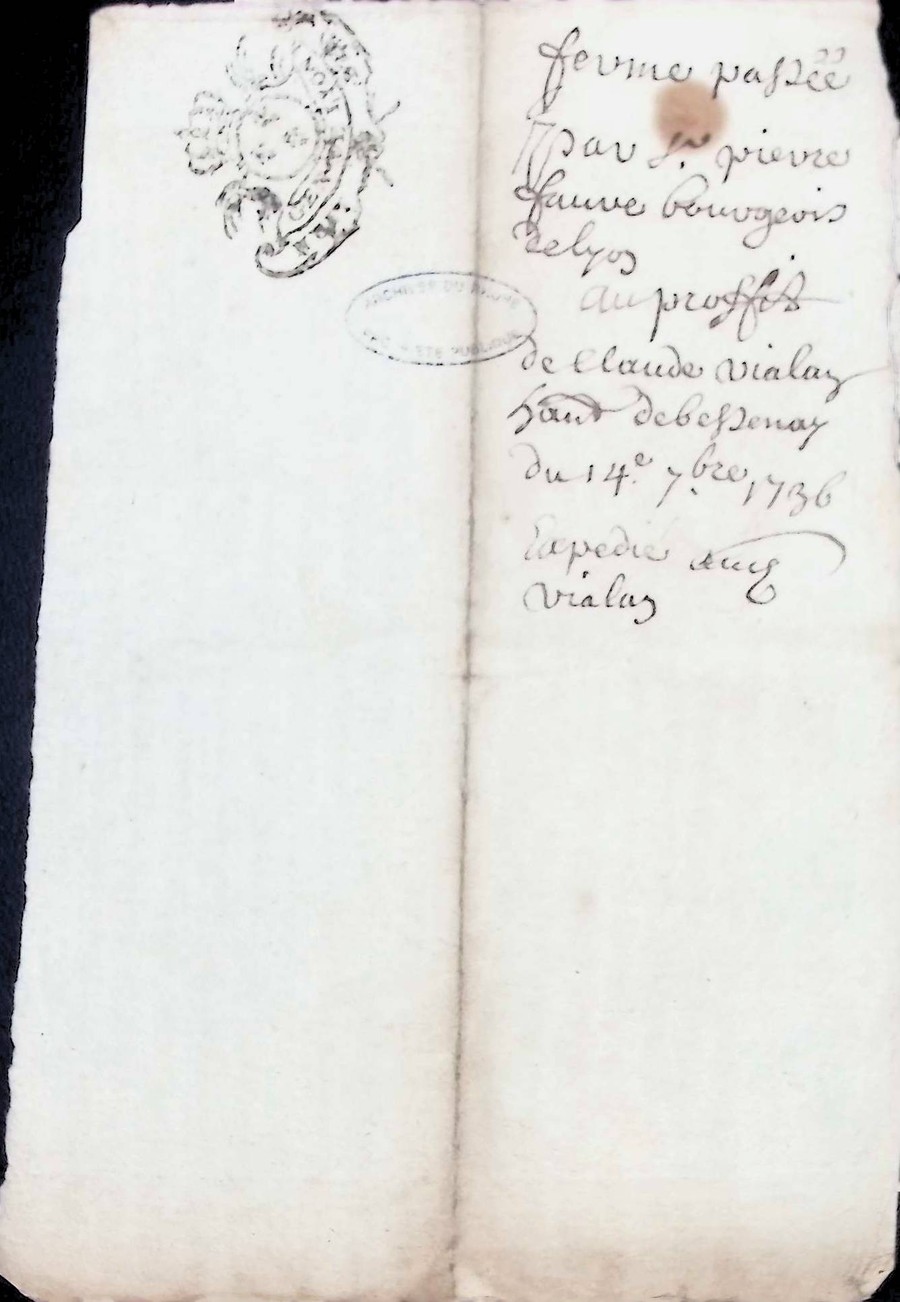 ferme passée
par Sr. pierre
faure bourgeois
delyon
au proffit
de Claude vialay
hant debessenay
du 14e. 7.bre 1736
Expedié aud
vialay
ARCHIVES DU RHONE